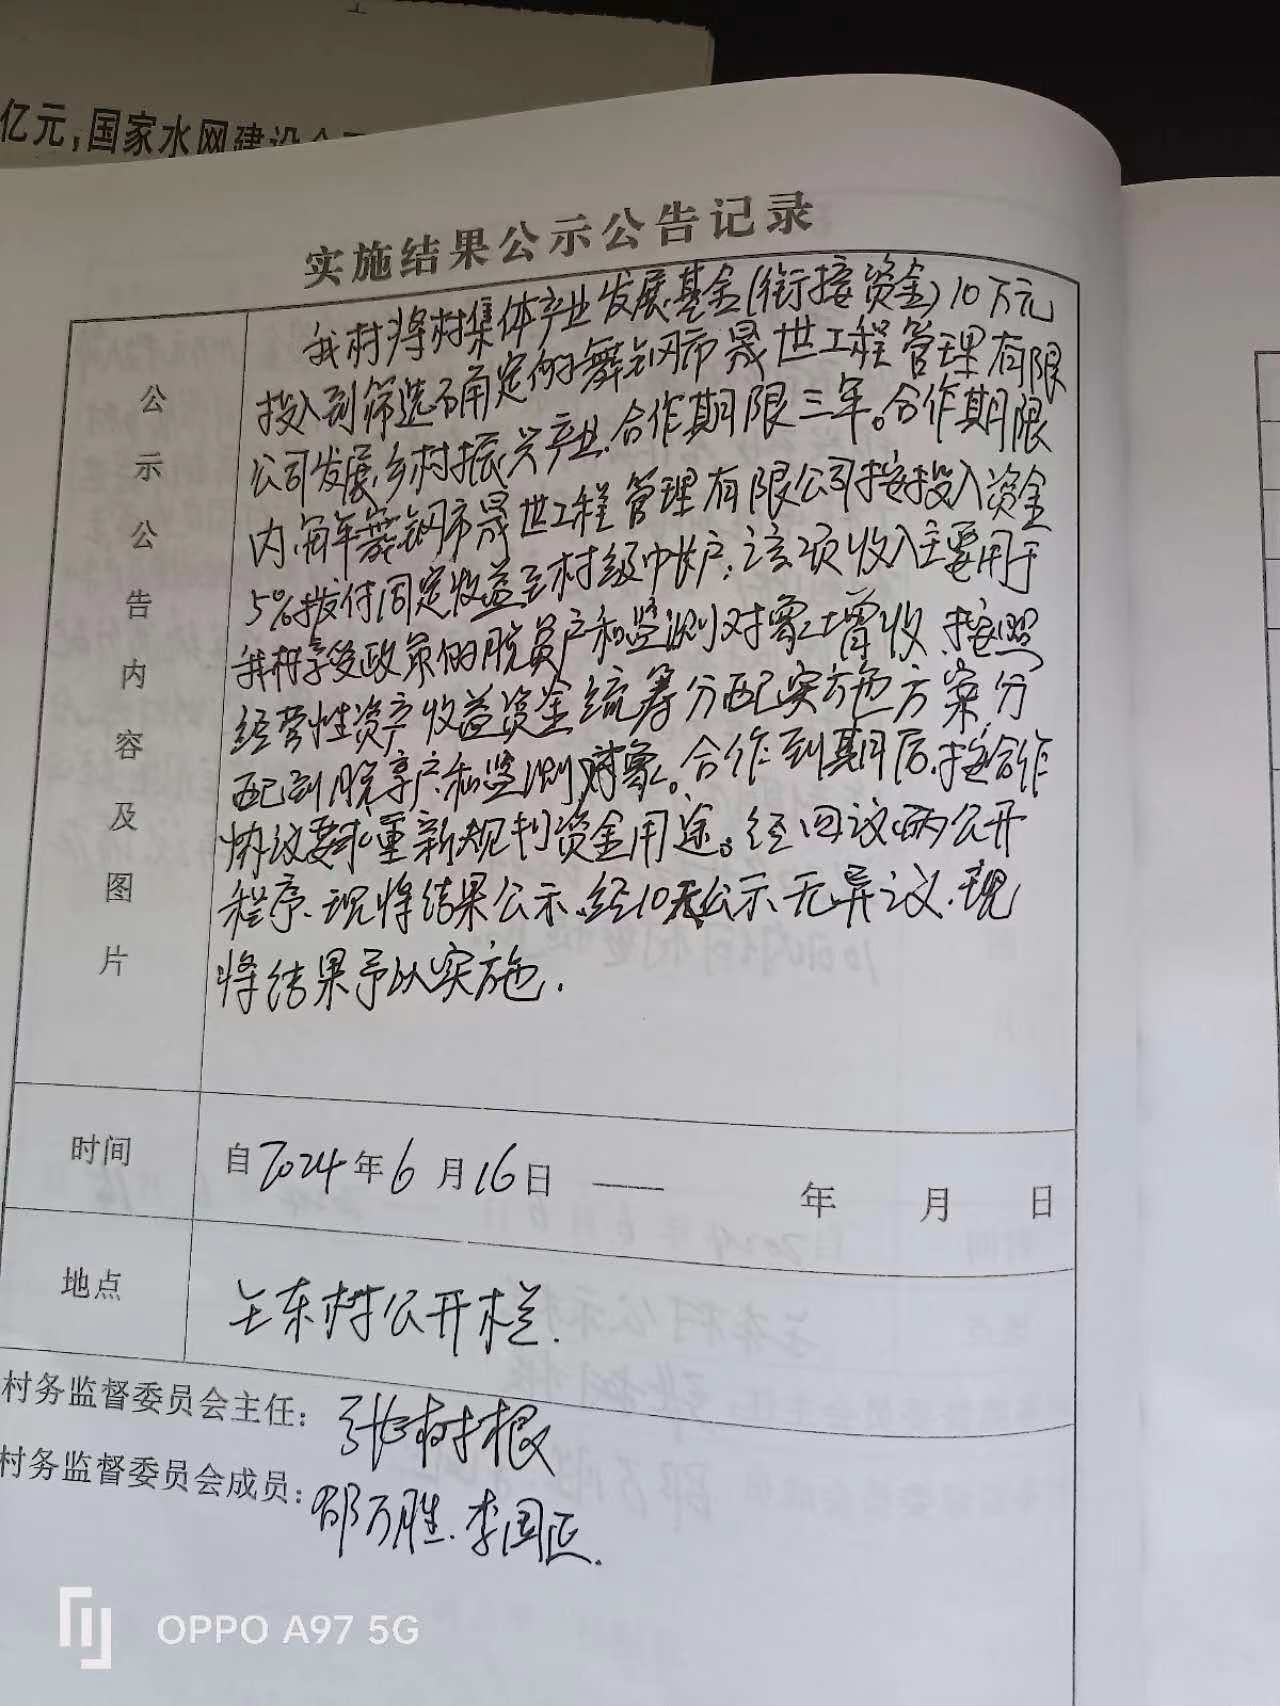 亿元,国家水网建设
实施结果公示公告记录
公示公告内容及图片
我村将村集体产业发展基金(衔接资金)10万元
投入到筛选确定的舞钢市晟世工程管理有限
公司发展乡村振兴产业,合作期限三年。合作期限
内,每年舞钢市晟世工程管理有限公司按投入资金
5%拨付固定收益至村级中账户,该项收入主要用于
我村享受政策的脱贫户和监测对象增收,按照
经营性资产收益资金统筹分配实施方案,分
配到脱享户和监测对象。合作到期后,按合作
协议要求重新规划资金用途。经四议两公开
程序,现将结果公示,经10天公示无异议,现
将结果予以实施.
时间 自2024年6月16日 —— 年 月 日
地点 王东村公开栏.
村务监督委员会主任: 张树根
村务监督委员会成员: 邵万胜.李国正.
OPPO A97 5G